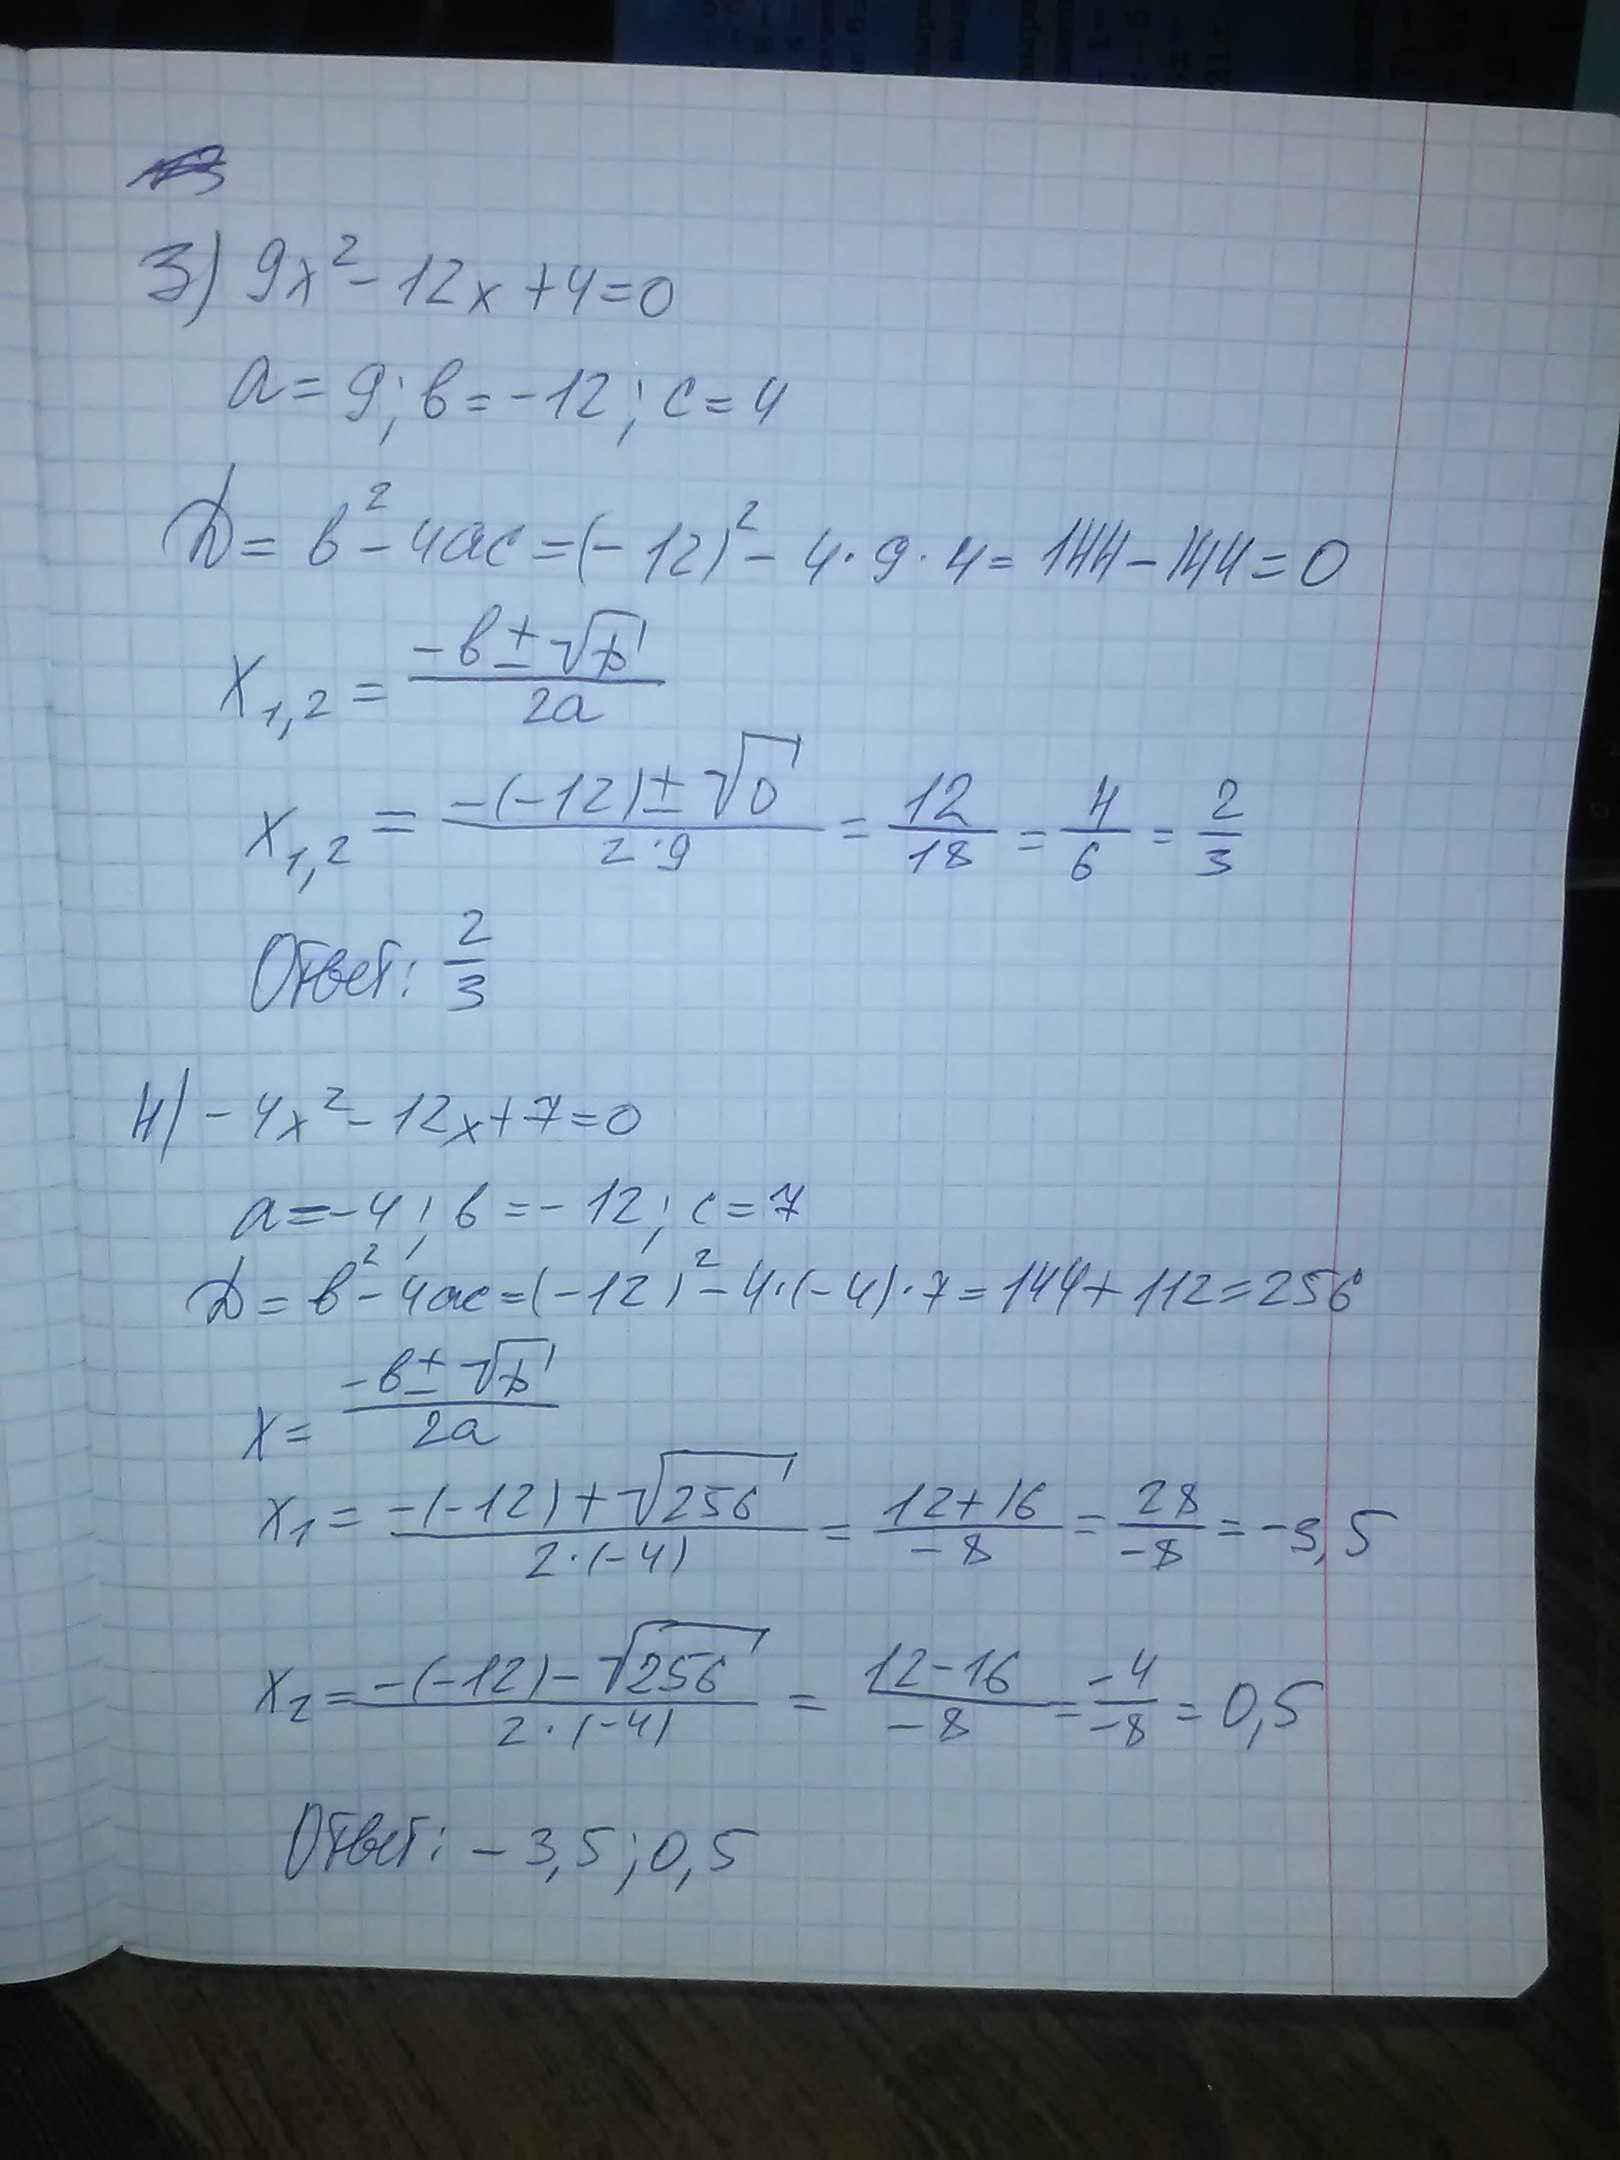 3) 9x² - 12x + 4 = 0
a = 9; в = -12; c = 4
D = в² - 4ac = (-12)² - 4·9·4 = 144 - 144 = 0
x₁,₂ = (-в ± √D)/(2a)
x₁,₂ = (-(-12) ± √0)/(2·9) = 12/18 = 4/6 = 2/3
Ответ: 2/3
4) -4x² - 12x + 7 = 0
a = -4; в = -12; c = 7
D = в² - 4ac = (-12)² - 4·(-4)·7 = 144 + 112 = 256
x = (-в ± √D)/(2a)
x₁ = (-(-12) + √256)/(2·(-4)) = (12+16)/(-8) = 28/(-8) = -3,5
x₂ = (-(-12) - √256)/(2·(-4)) = (12-16)/(-8) = (-4)/(-8) = 0,5
Ответ: -3,5; 0,5